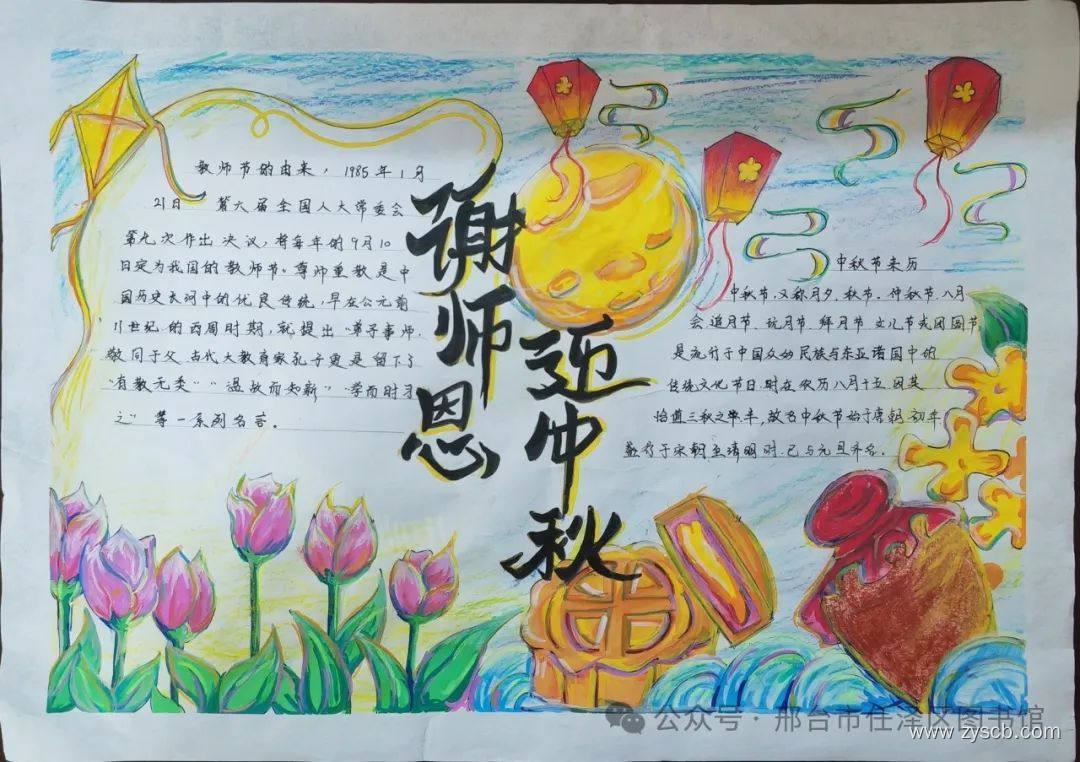 教师节的由来，1985年1月
21日 第六届全国人大常委会
第九次作出决议，将每年的9月10
日定为我国的教师节。尊师重教是中
国历史长河中的优良传统，早在公元前
11世纪的西周时期，就提出"弟子事师，
敬同于父，古代大教育家孔子更是留下了
"有教无类""温故而知新""学而时习
之"等一系列名言。
谢师恩
迎中秋
中秋节来历
中秋节，又称月夕、秋节、仲秋节、八月
会、追月节、玩月节、拜月节、女儿节或团圆节，
是流行于中国众多民族与东亚诸国中的
传统文化节日，时在农历八月十五，因其
恰值三秋之半，故名中秋节始于唐朝初年
盛行于宋朝，至清明时，已与元旦齐名。
公众号·邢台市任泽区图书馆
www.zyscb.com